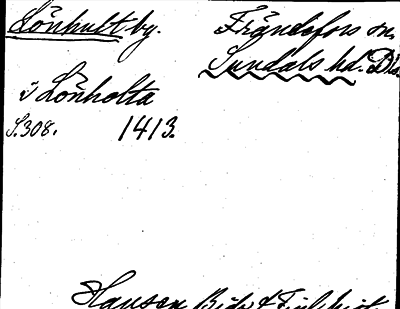 Lönhult by. Frändefors sn.
Sundals hd. Dls.
i Lönholta
S. 308. 1413.
Hansen Bidr t Finl hist